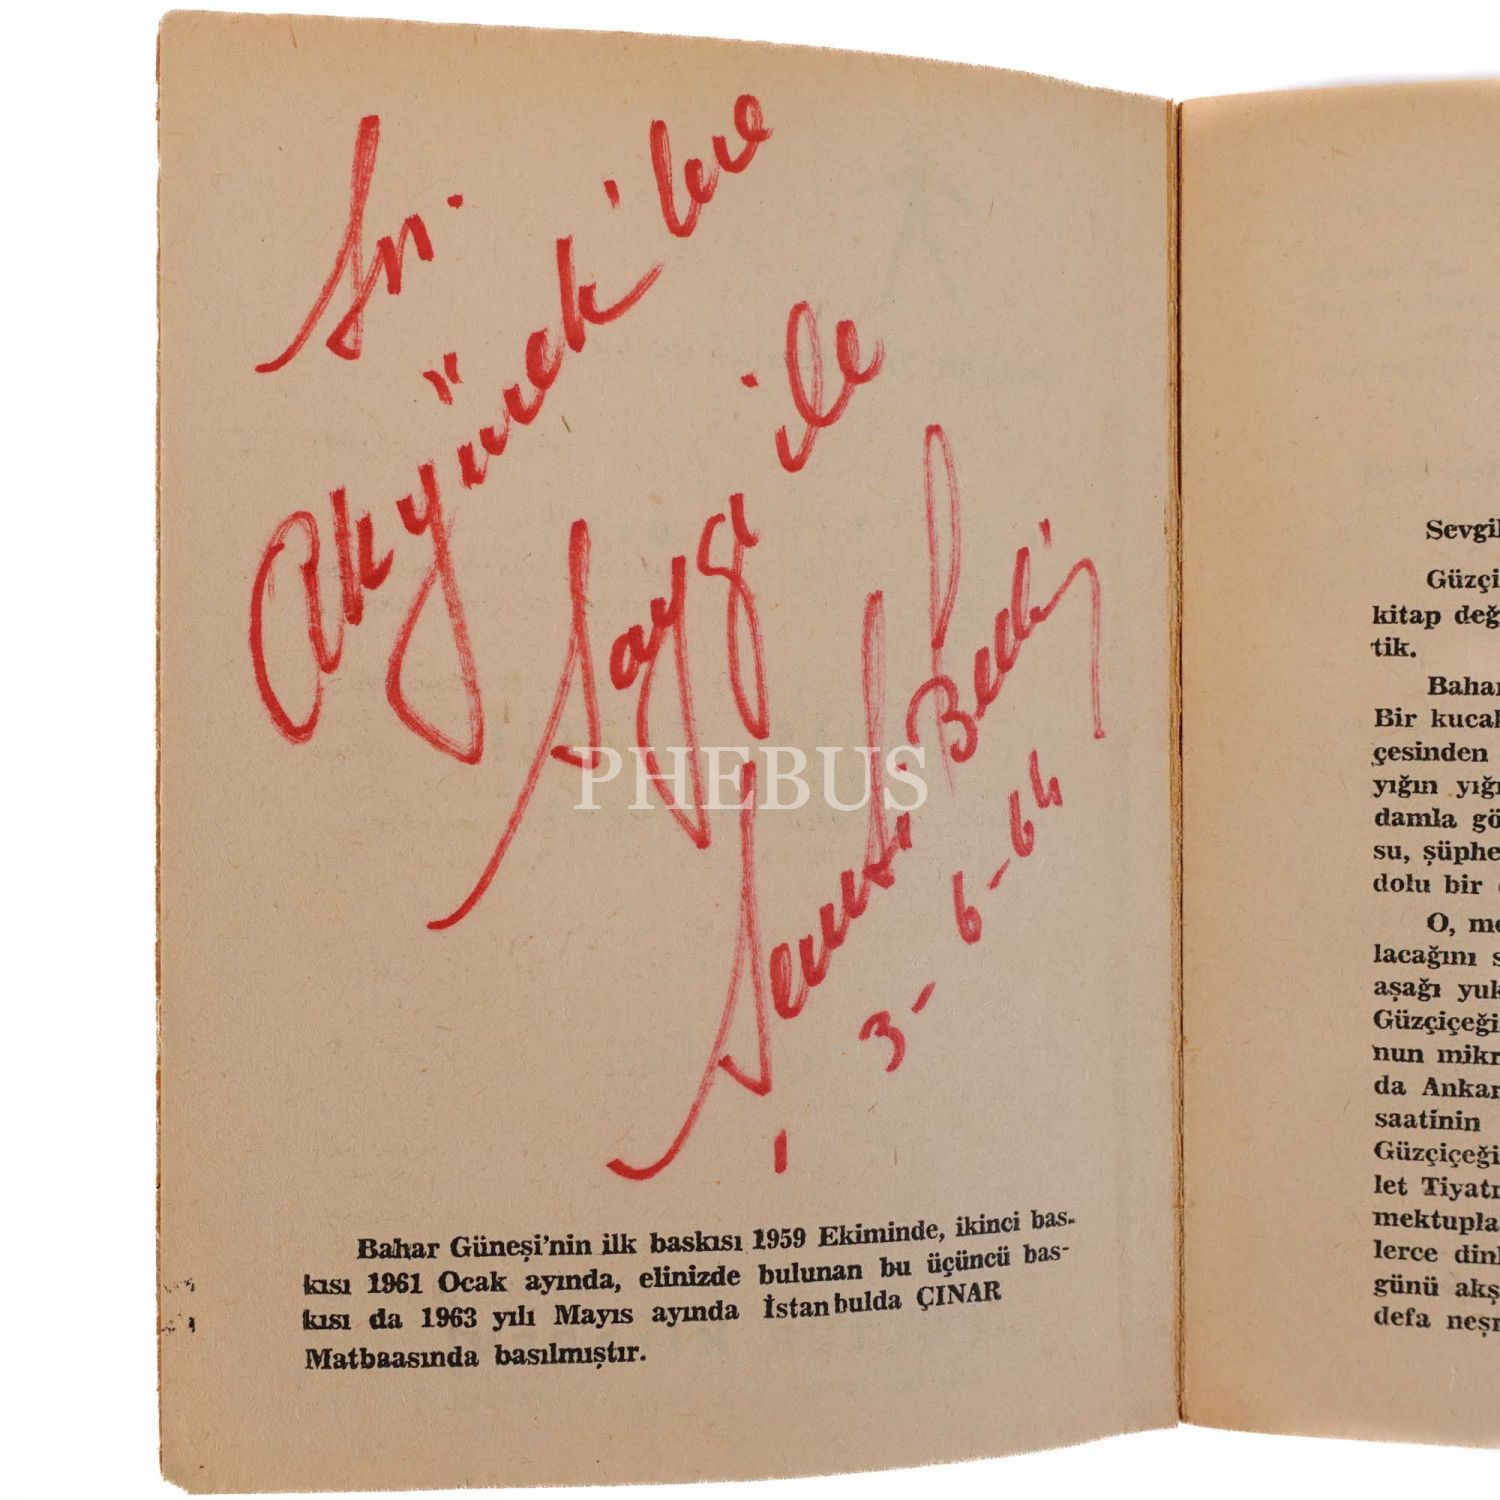 Sn.
Akyürek'lere
Saygı ile
Şemsi Belli
3-6-64
PHEBUS
Bahar Güneşi'nin ilk baskısı 1959 Ekiminde, ikinci bas-
kısı 1961 Ocak ayında, elinizde bulunan bu üçüncü bas-
kısı da 1963 yılı Mayıs ayında İstanbulda ÇINAR
Matbaasında basılmıştır.
Sevgil
Güzçi
kitap değ
tik.
Bahar
Bir kucak
çesinden
yığın yığı
damla gö
su, şüphe
dolu bir
O, me
lacağını s
aşağı yuk
Güzçiçeği
nun mikr
da Ankar
saatinin
Güzçiçeği
let Tiyatr
mektupla
lerce dinl
günü akş
defa neşr